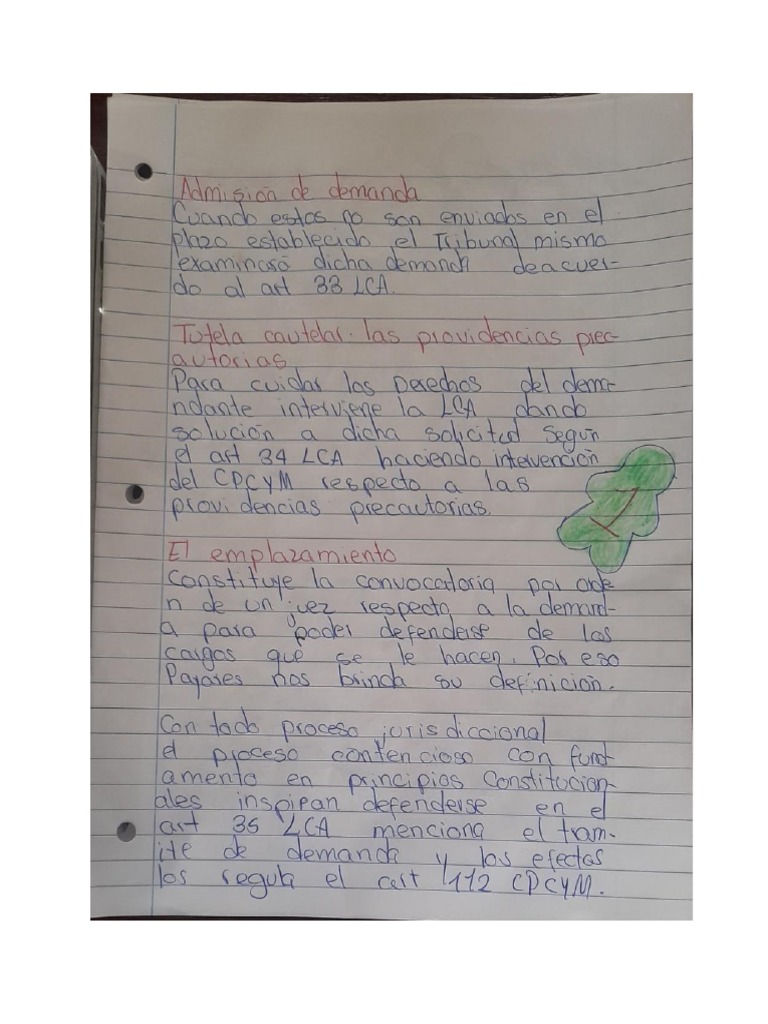 Admisión de demanda
Cuando estos no son enviados en el
plazo establecido el Tribunal mismo
examinasá dicha demanda deacuer-
do al art 33 LCA.
Tutela cautelar. las providencias prec-
autorias
Para cuidar los Derechos del dema-
ndante interviene la LCA dando
solución a dicha solicitud Según
el art 34 LCA haciendo intevención
del CPCYM respecto a las
provi dencias precautorias.
El emplazamiento
Constituye la convocatoria por orde
n de un juez respecto a la demand-
a para poder defenderse de los
cargos que se le hacen. Por eso
Payares nos brinda su definicion.
Con todo proceso jurisdiccional
el proceso contencioso con fund-
amento en principios Constitucion-
ales inspiran defenderse en el
art 35 LCA menciona el tram-
ite de demanda y los efectos
los regula el art 112 CPCYM.